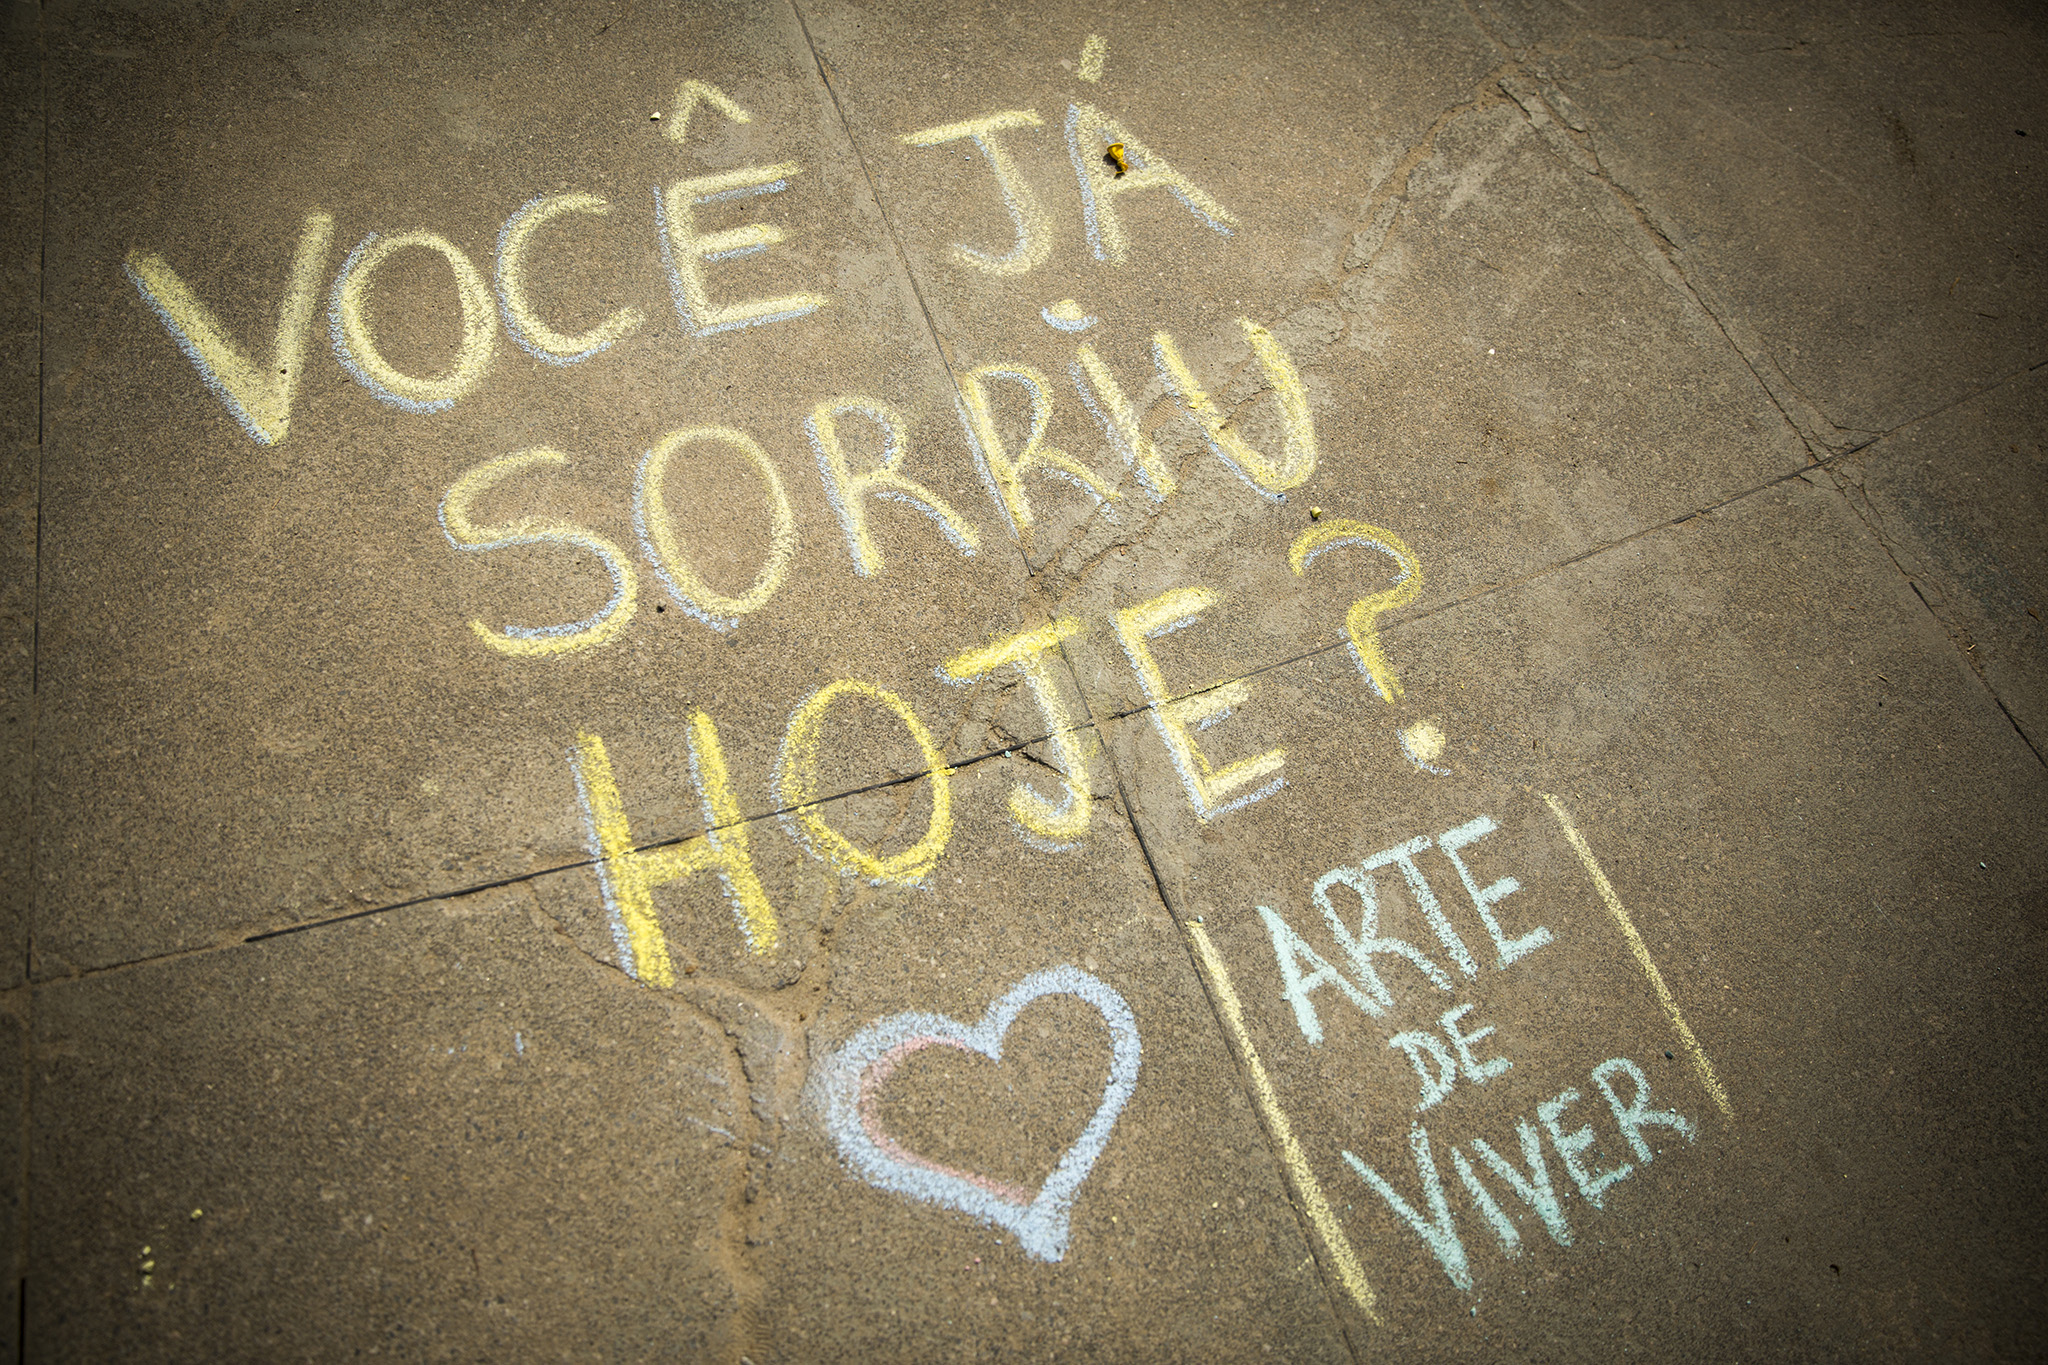 VOCÊ JÁ
SORRiU
HOJE?
ARTE
DE
VIVER